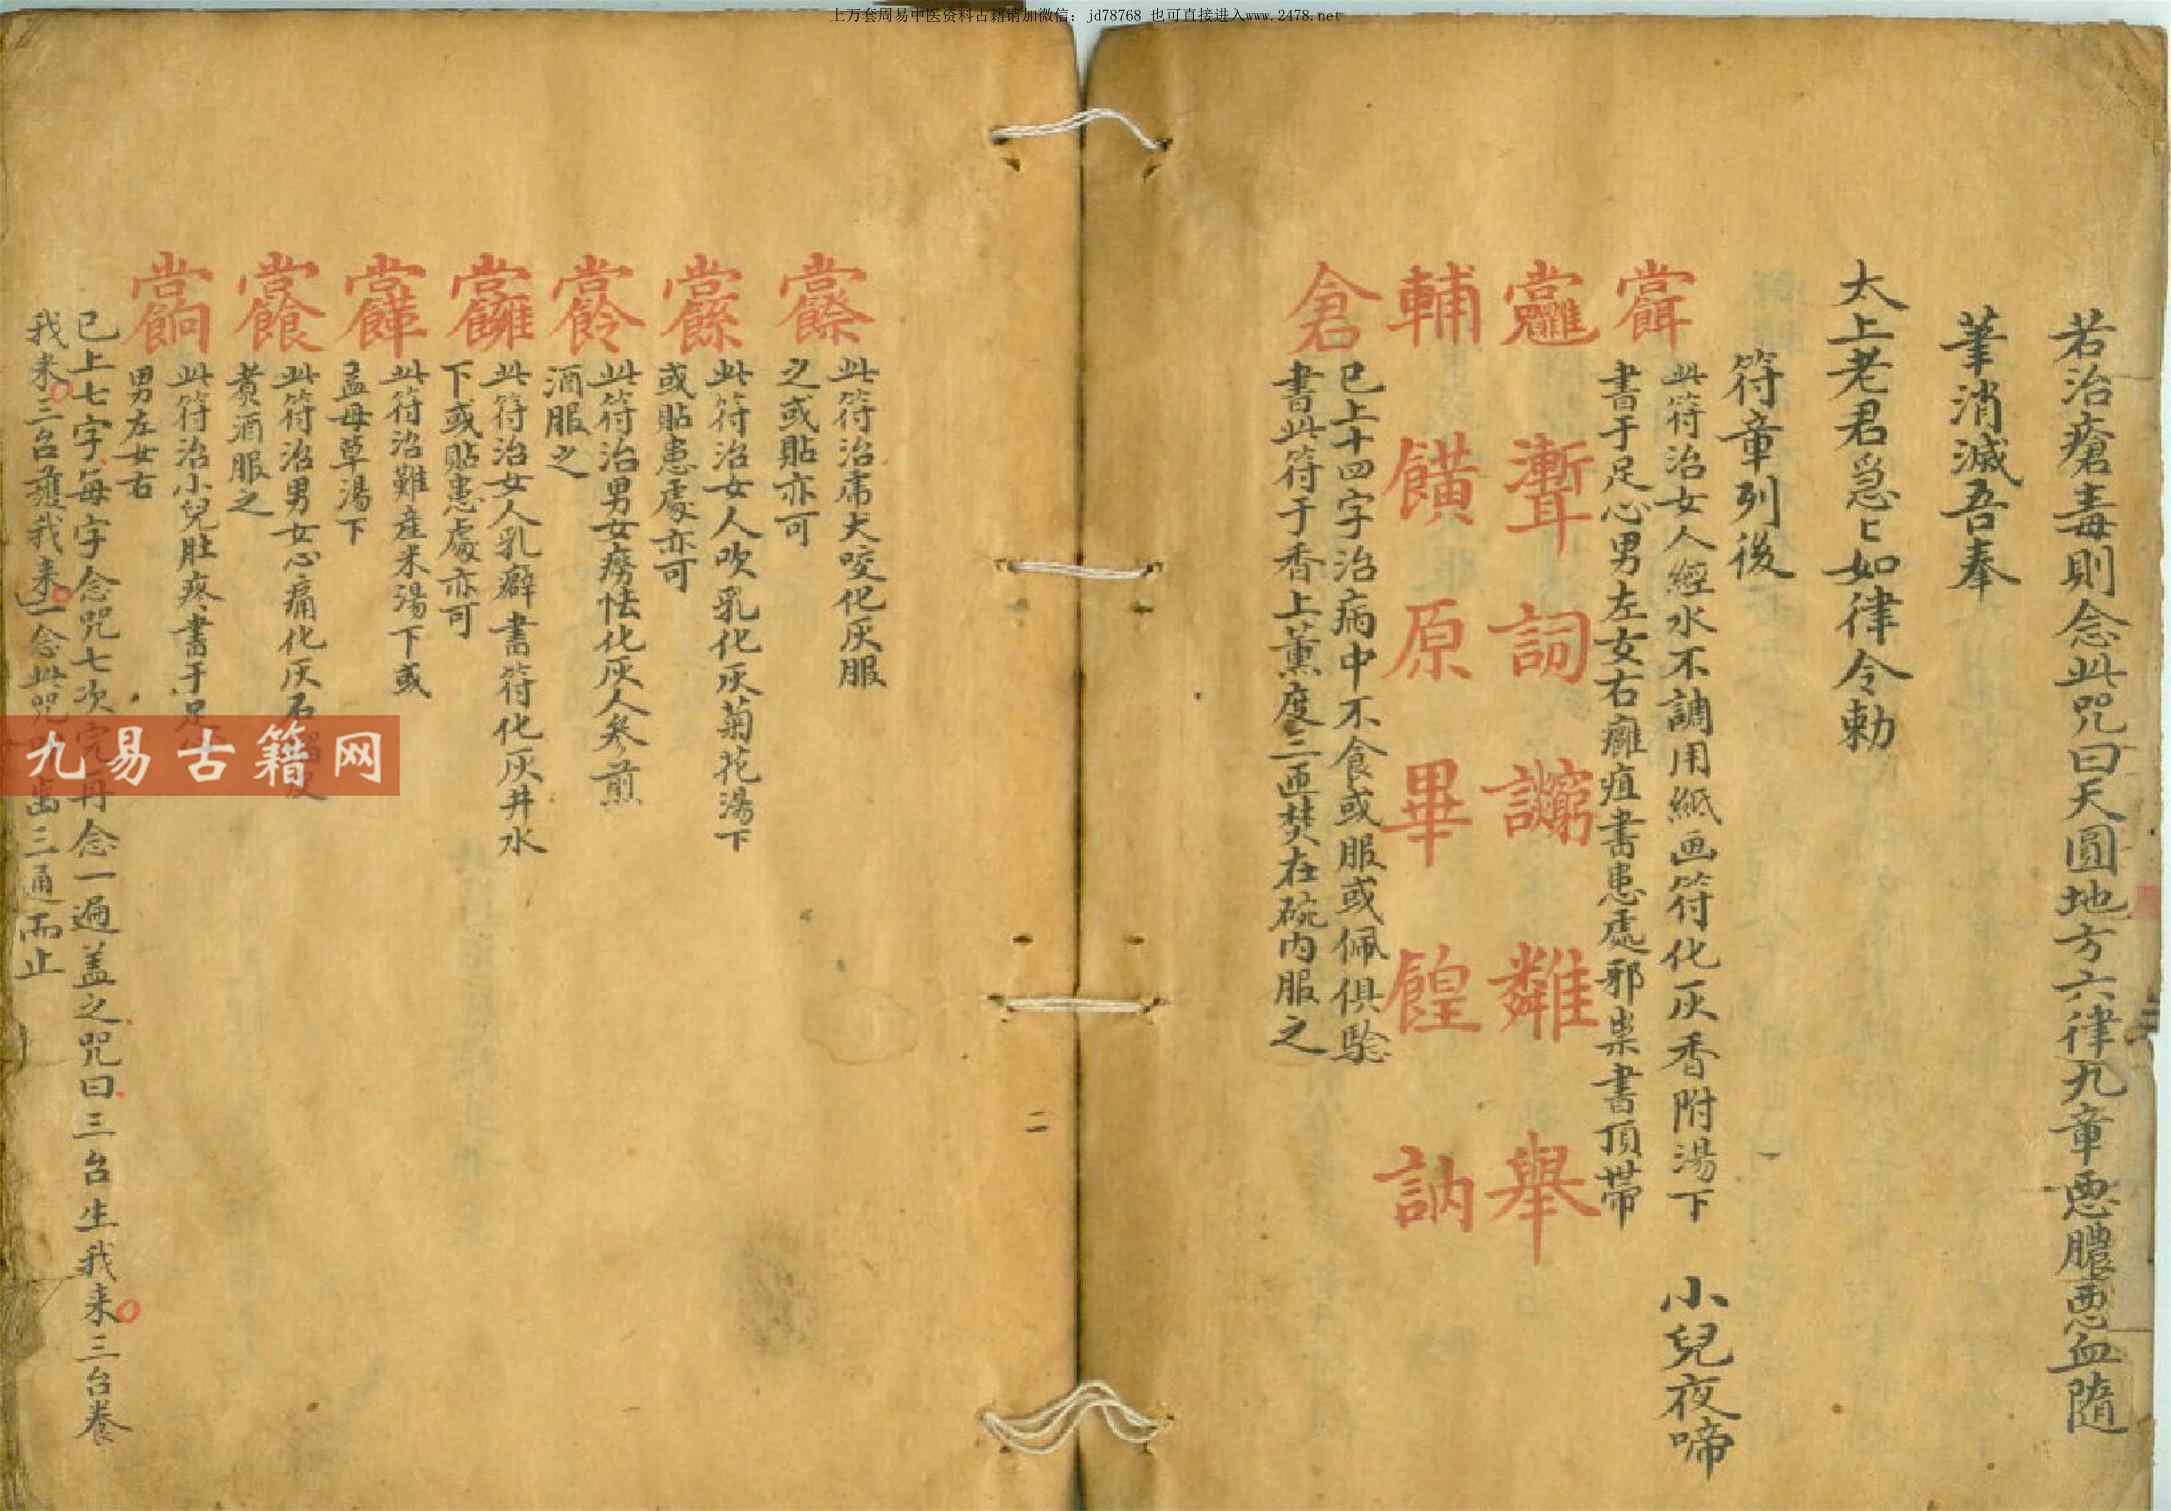 上万套周易中医资料古籍请加微信：jd78768 也可直接进入www.2478.net
若治瘡毒則念此咒曰天圓地方六律九章悪膿悪血隨
筆消滅吾奉
太上老君急匕如律令勅
符章列後
此符治女人經水不調用紙画符化灰香附湯下 小兒夜啼
書于足心男左女右癰疽書患處邪祟書頂帶
聻詞舉
輔饋原畢餭訥
倉
已上十四字治病中不食或服或佩俱騐
書此符于香上薰度三匝焚在碗内服之
此符治席犬咬化灰服
之或貼亦可
此符治女人吹乳化灰菊花湯下
或貼患處亦可
此符治男女癆怯化灰人參煎
酒服之
此符治女人乳癖書符化灰井水
下或貼患處亦可
此符治難産米湯下或
孟母草湯下
此符治男女心痛化灰石榴皮
煑酒服之
此符治小兒肚疼書于足
男左女右
已上七字每字念咒七次完再念一遍盖之咒曰三台生我来三台養
我来三台護我来一念此咒出三通而止
二
九易古籍网